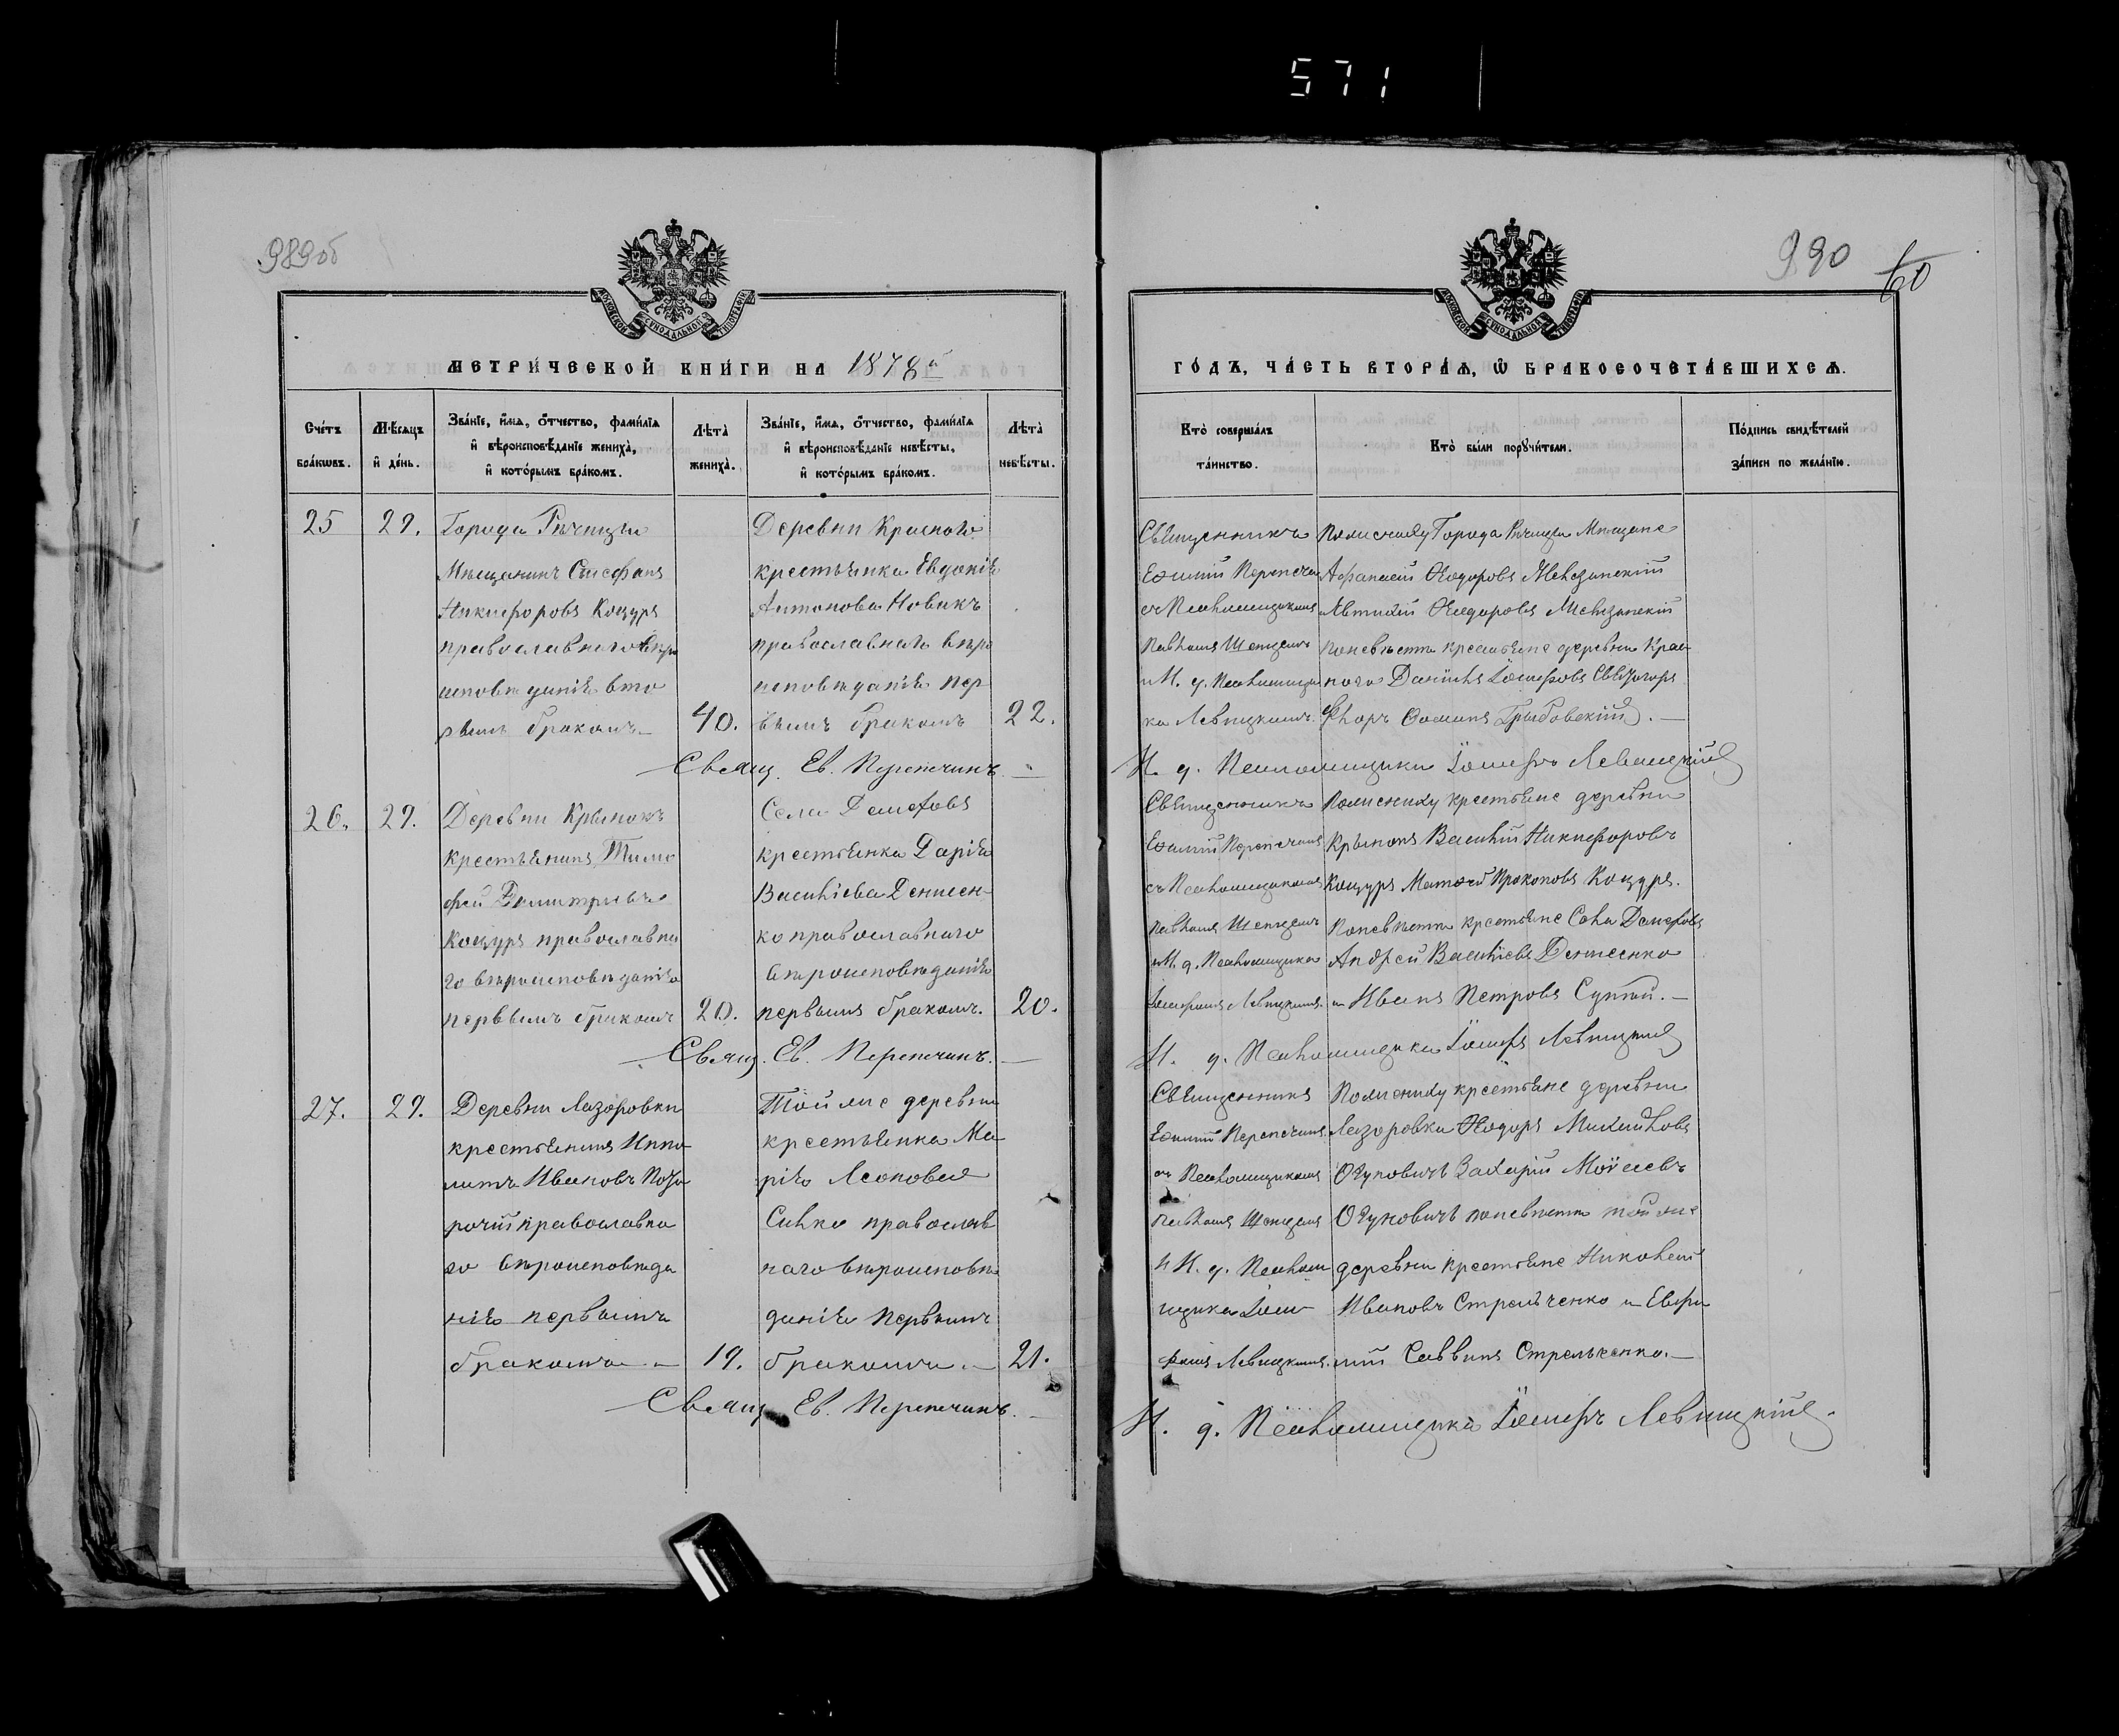 571
989об
990
60
МОСКОВСКОЙ СѴНОДАЛЬНОЙ ТИПОГРАФІИ
МОСКОВСКОЙ СѴНОДАЛЬНОЙ ТИПОГРАФІИ
МЕТРИ́ЧЕСКОЙ КНИ́ГИ НА 1878й
ГО́ДЪ, ЧА́СТЬ ВТОРА́Ѧ, Ѡ҆ БРАКОСОЧЕТА́ВШИХСѦ.
Сче́тъ бра́кѡвъ.
Мѣ́сѧцъ и҆ де́нь.
Зва́нїе, и҆́мѧ, ѻ҆́тчество, фами́лїѧ и҆ вѣроисповѣ́данїе жениха̀, и҆ кото́рымъ бра́комъ.
Лѣта̀ жениха̀.
Зва́нїе, и҆́мѧ, ѻ҆́тчество, фами́лїѧ и҆ вѣроисповѣ́данїе невѣ́сты, и҆ кото́рымъ бра́комъ.
Лѣта̀ невѣ́сты.
Кто̀ соверша́лъ та́инство.
Кто̀ бы́ли порꙋчи́тели.
По́дпись свидѣ́телей за́писи по жела́нїю.
25
29.
Города Рѣчицы
Мѣщанинъ Стефанъ
Никифоровъ Коцуръ
православнаго вѣро
исповѣданія вто
рымъ бракомъ
40.
Деревни Красной
крестьянка Евдокія
Антонова Новикъ
православнаго вѣро
исповѣданія пер
вымъ бракомъ
22.
Священникъ
Евѳимій Перепечи
съ Псаломщикомъ
и И. д. Псаломщи
ка Левицкимъ.
По жениху Города Рѣчицы Мѣщане
Афанасій Ѳеодоровъ
Ѳеодоровъ
по невѣстѣ крестьяне деревни Крас
ного Даніилъ Іосифовъ
Ѳлоръ Ѳоминъ Грибовскій.
Свящ. Ев. Перепечинъ.
И. д. Псаломщика Іосифъ Левицкій
26.
29.
Деревни Крынокъ
крестьянинъ Тимо
фей Димитріевъ
Коцуръ православна
го вѣроисповѣданія
первымъ бракомъ
20.
Села
крестьянка Дарія
Василіева Денисен
ко православнаго
вѣроисповѣданія
первымъ бракомъ.
20.
Священникъ
Евѳимій Перепечинъ
съ Псаломщикомъ
и И. д. Псаломщика
Іосифомъ Левицкимъ.
По жениху крестьяне деревни
Крынокъ Василій Никифоровъ
Коцуръ Матѳей Прокоповъ Коцуръ.
По невѣстѣ крестьяне Села
Андрей Василіевъ Денисенко
и Иванъ Петровъ
Свящ. Ев. Перепечинъ.
И. д. Псаломщика Іосифъ Левицкій
27.
29.
Деревни Лазаровки
крестьянинъ Иппо
литъ Ивановъ
православна
го вѣроисповѣда
нія первымъ
бракомъ
19.
Той же деревни
крестьянка Ма
рія Леонова
Силко православ
наго вѣроисповѣ
данія первымъ
бракомъ.
21.
Священникъ
Евѳимій Перепечинъ
съ Псаломщикомъ
и И. д. Псалом
щика Іоси
фомъ Левицкимъ.
По жениху крестьяне деревни
Лазаровки Ѳеодоръ Михайловъ
Захарій Моисеевъ
по невѣстѣ той же
деревни крестьяне Николай
Ивановъ Стрельченко и Евфи
мій Саввинъ Стрельченко.
Свящ. Ев. Перепечинъ.
И. д. Псаломщика Іосифъ Левицкій.